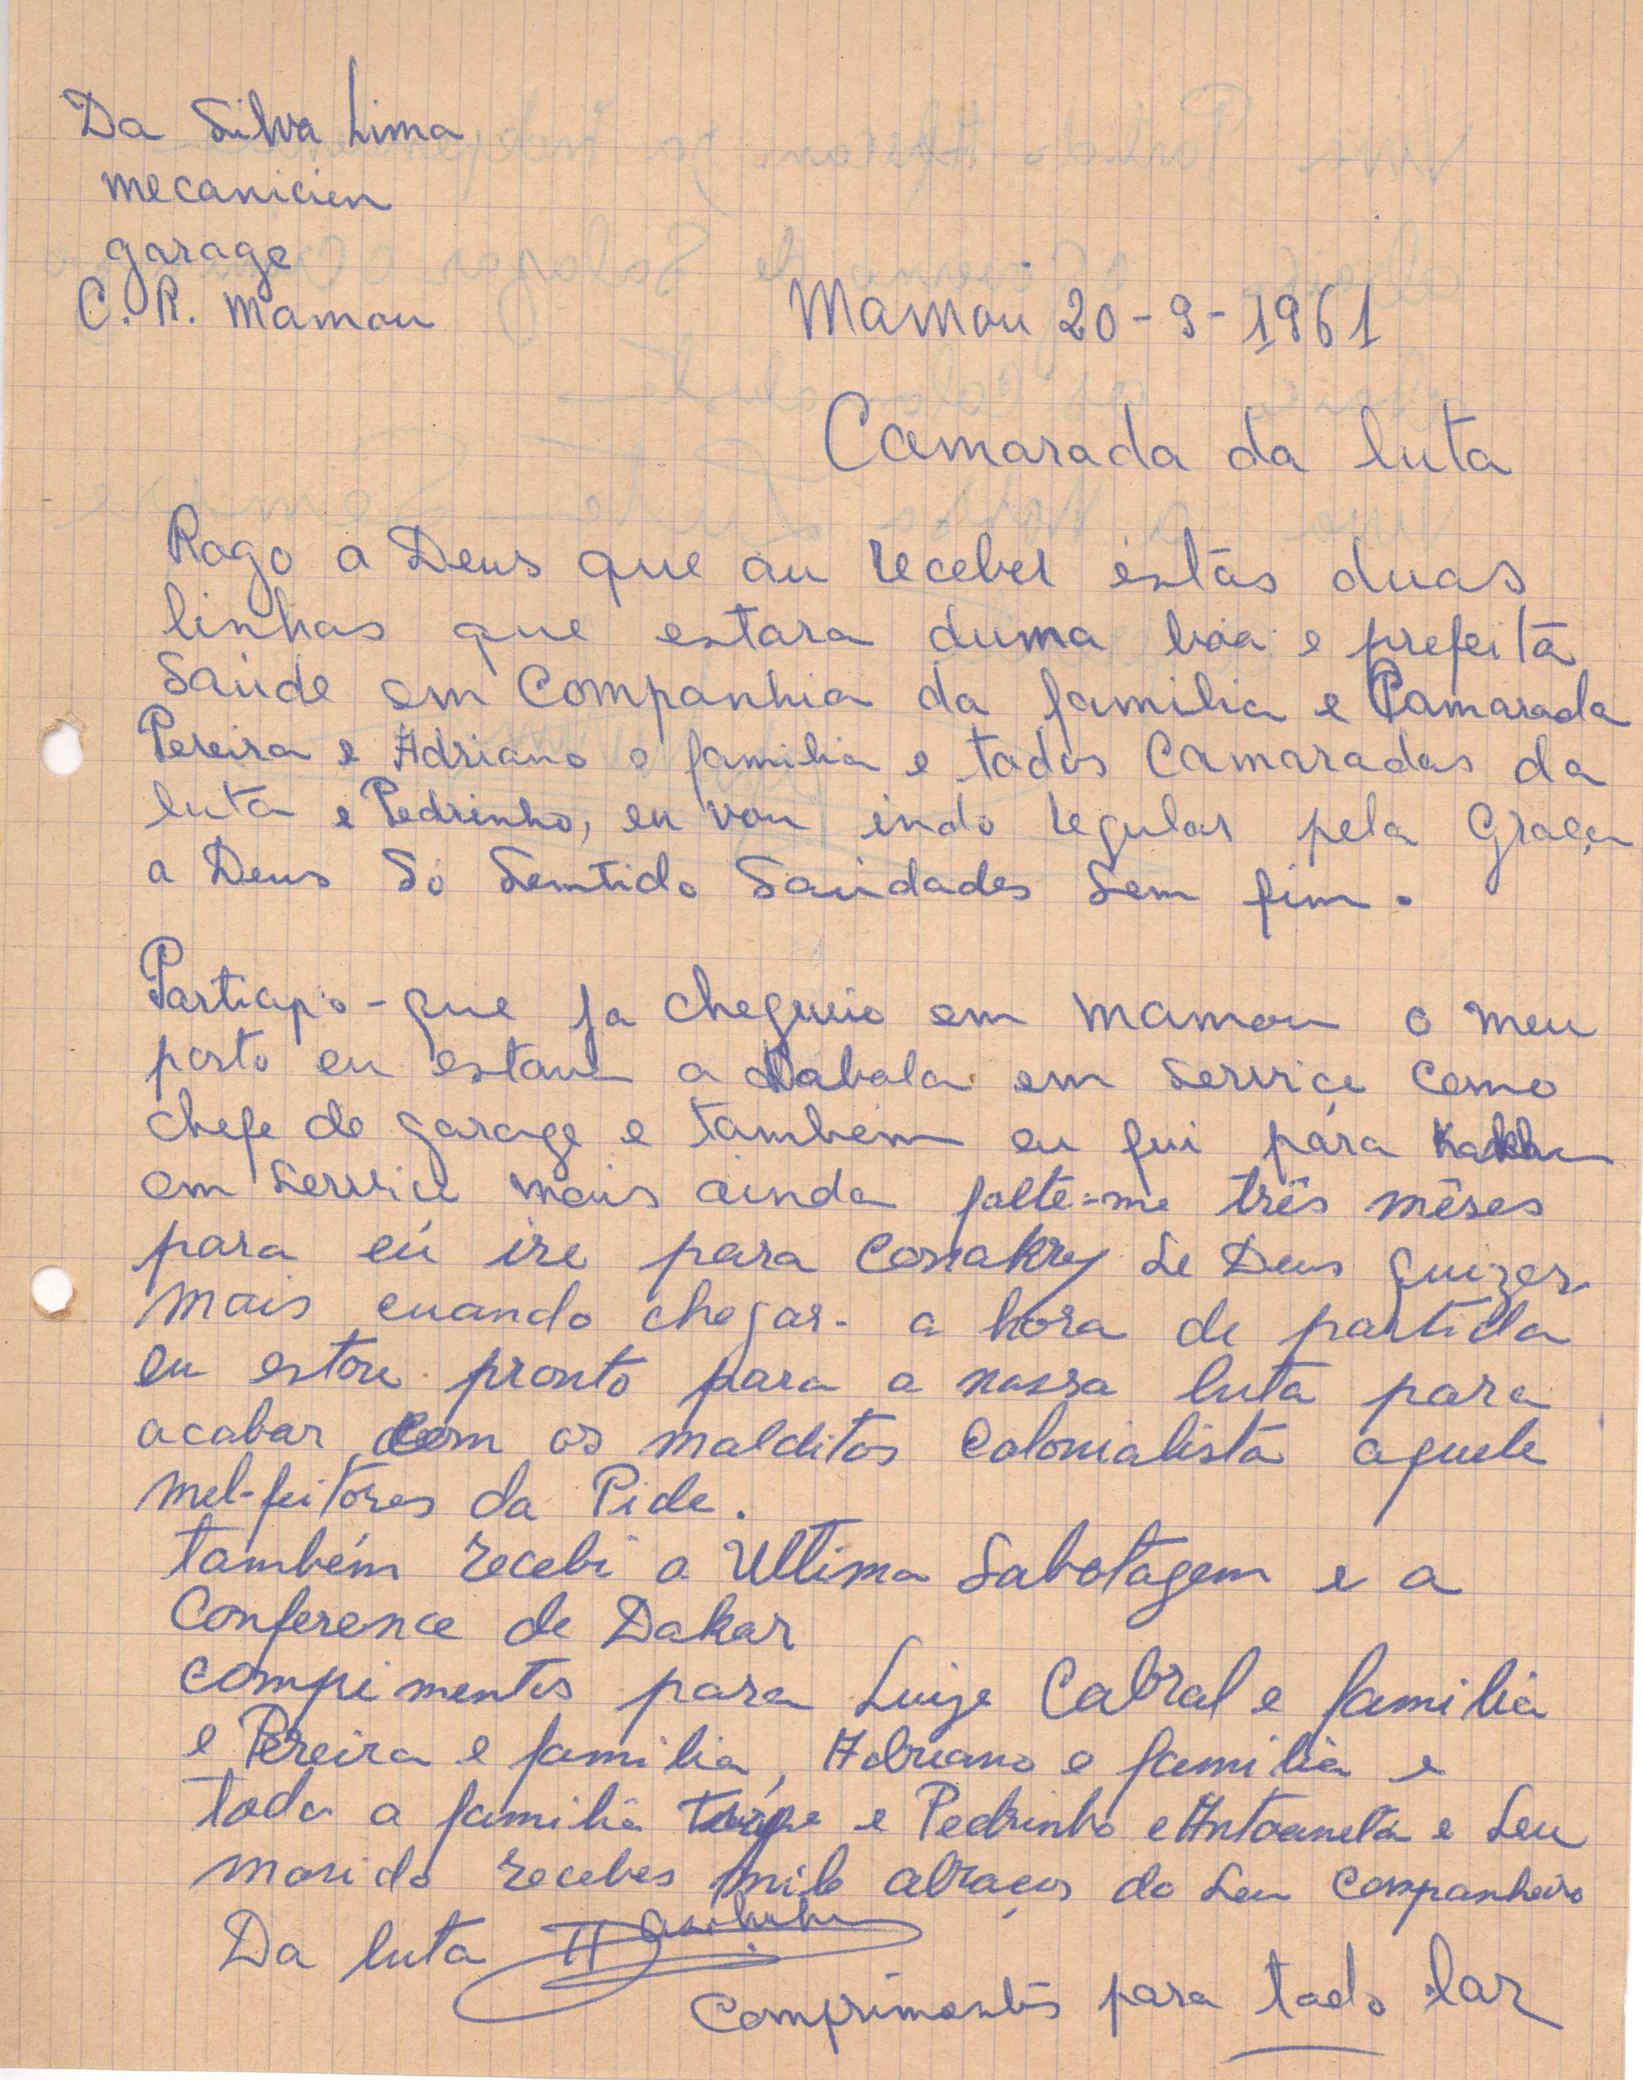 Da Silva Lima
mecanicien
garage
C. R. Mamou
Mamou 20-9-1961
Camarada da luta
Rogo a Deus que au receber estas duas
linhas que estara duma boa e prefeita
Saúde em Companhia da familia e Camarada
Pereira e Adriano e familia e todos Camaradas da
luta e Pedrinho, eu vou indo regular pela Graça
a Deus Só Semtido Saudades Sem fim.
Particip-o-que ja cheguio em mamou o meu
posto eu estava a dabola em service como
chefe de garage e também eu fui para
em service mais ainda falte-me três mêses
para eu ire para Conakry Se Deus quizer
mais cuando chegar-a hora de partida
eu estou pronto para a nossa luta para
acabar com os malditos Colonialista aquele
mel-feitores da Pide.
também recebi a Ultima Sabotagem e a
Conference de Dakar
compimentos para Luize Cabral e familia
e Pereira e familia, Adriano e familia e
toda a familia e Pedrinho e Antoaneta e Seu
marido recebes mile abraços do Seu Companheiro
Da luta
Comprimentos para todo lar